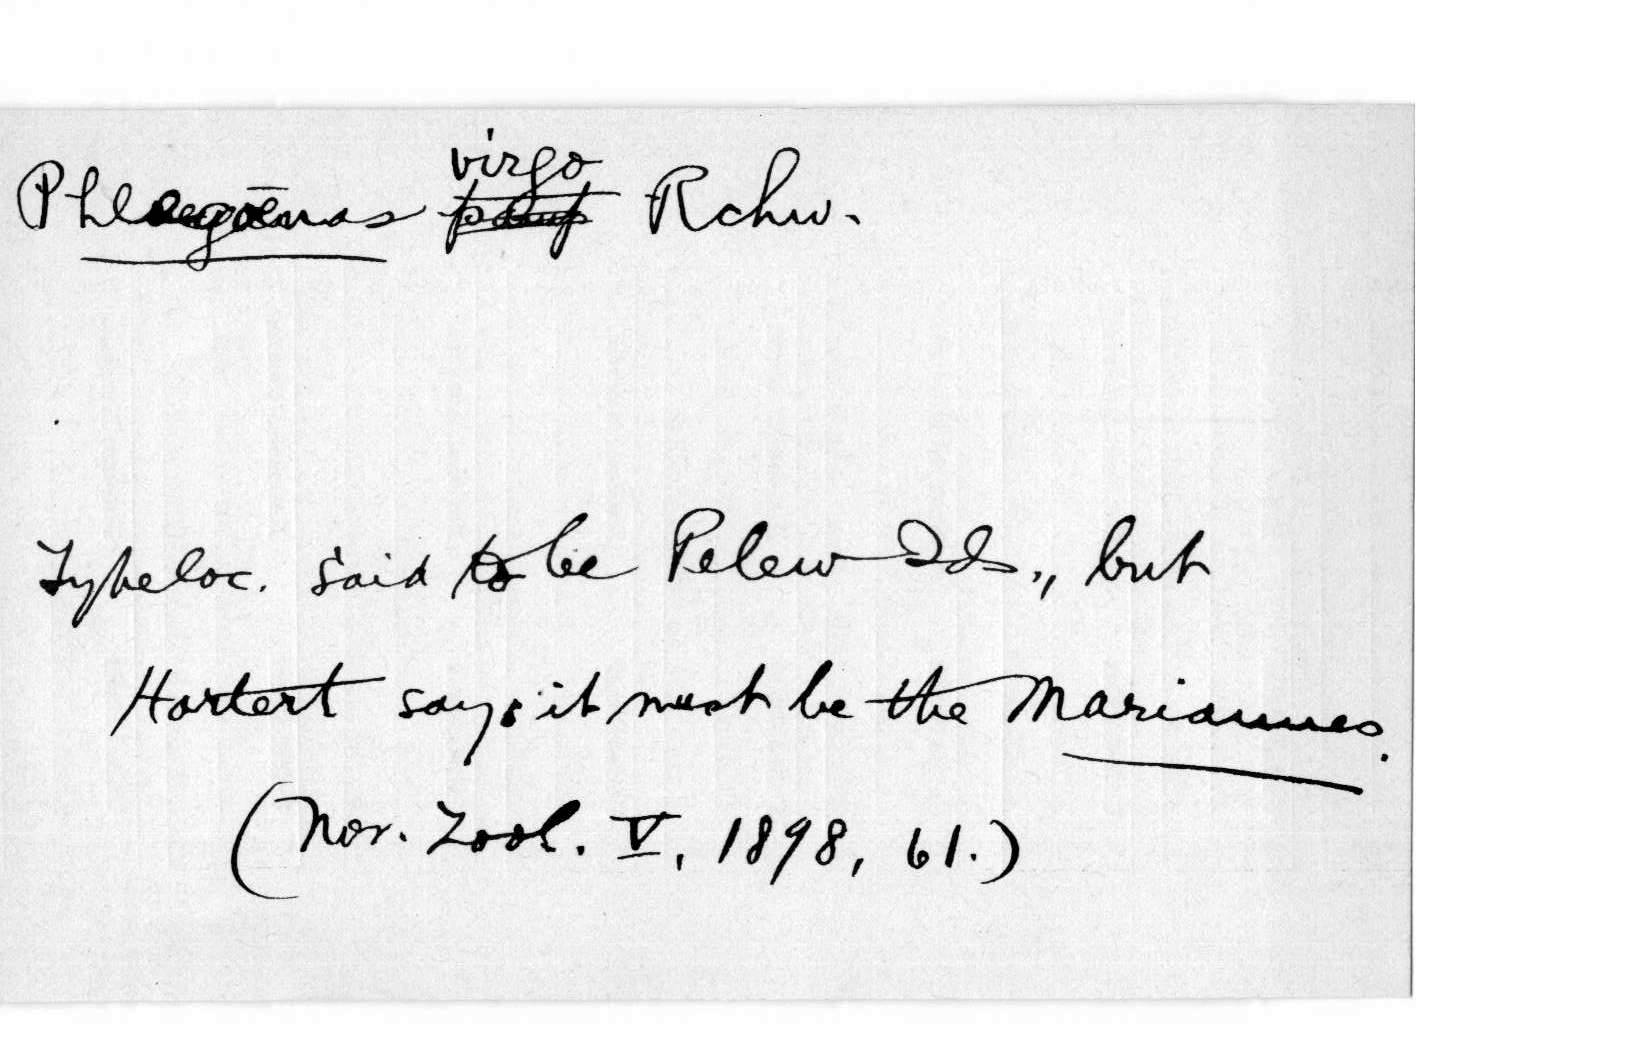 Phlegoenas virgo Rchw.
Typeloc. said to be Pelew Ids., but
Hartert says it must be the Mariannes.
(Nov. Zool. V, 1898, 61.)